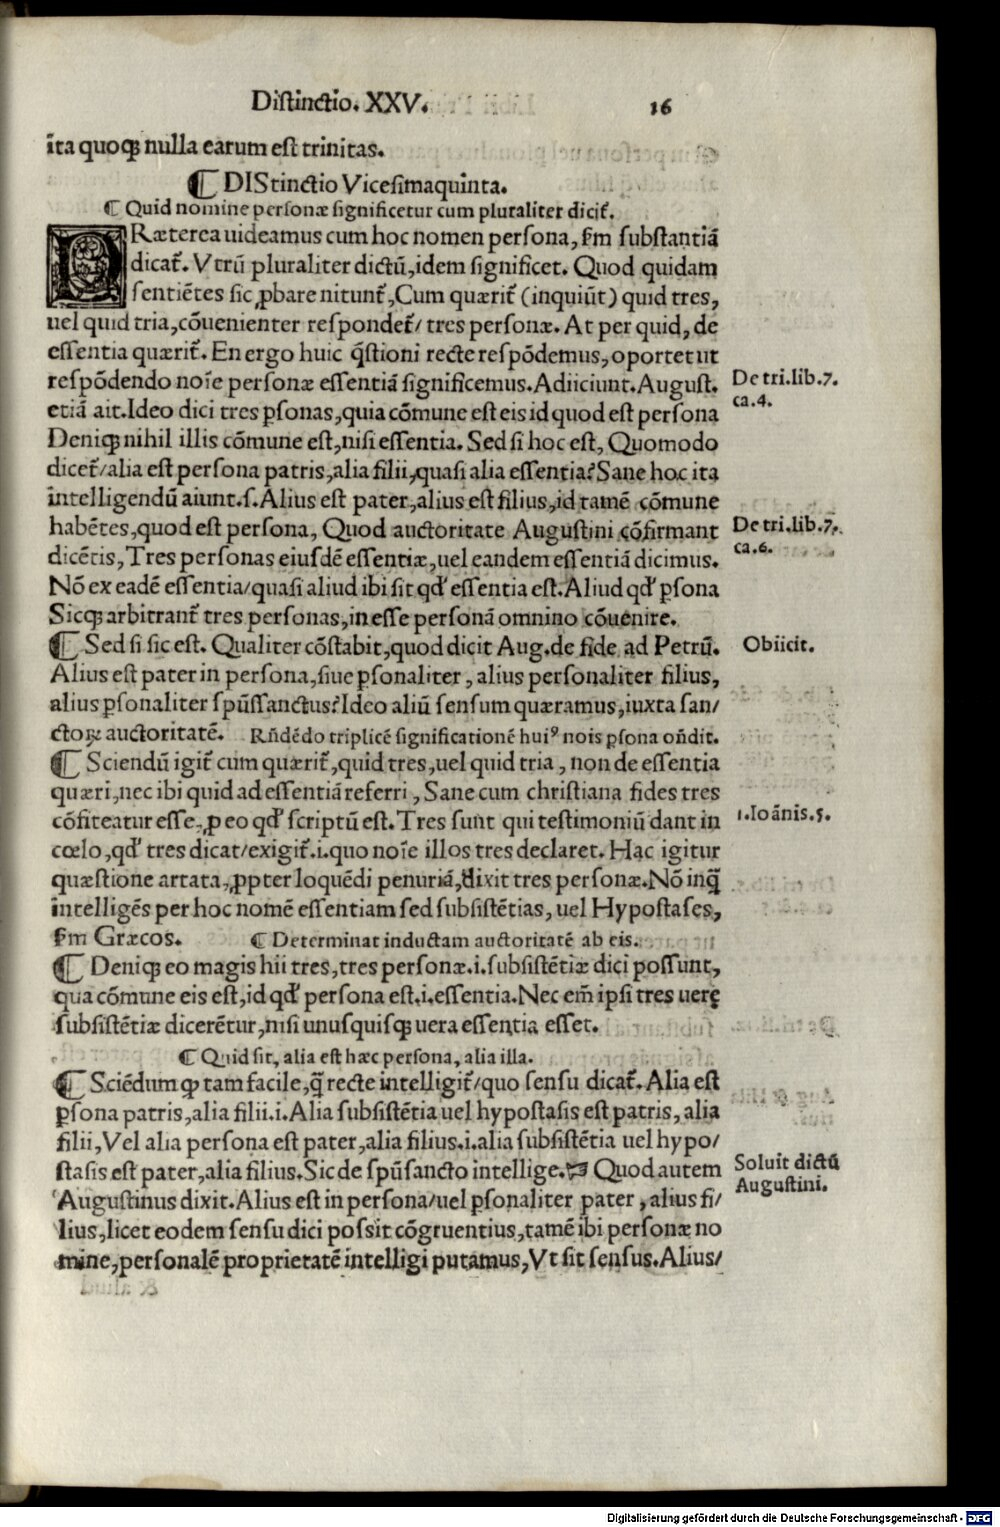 Distinctio. XXV.
16
ita quoqꝫ nulla earum est trinitas.
¶ DIStinctio Vicesimaquinta.
¶ Quid nomine personæ significetur cum pluraliter dicit̃.
PRæterea uideamus cum hoc nomen persona, ẜm substantiã
dicat̃. Vtrũ pluraliter dictũ, idem significet. Quod quidam
sentiẽtes sic ꝓbare nitunt̃, Cum quærit̃ (inquiũt) quid tres,
uel quid tria, cõuenienter respondet̃/ tres personæ. At per quid, de
essentia quærit̃. En ergo huic q̃stioni recte respõdemus, oportet ut
respõdendo noĩe personæ essentiã significemus. Adiiciunt. August.
De tri.lib.7.
ca.4.
etiã ait. Ideo dici tres ꝑsonas, quia cõmune est eis id quod est persona
Deniqꝫ nihil illis cõmune est, nisi essentia. Sed si hoc est, Quomodo
dicet̃/alia est persona patris, alia filii, quasi alia essentia? Sane hoc ita
intelligendũ aiunt.ſ. Alius est pater, alius est filius, id tamẽ cõmune
habẽtes, quod est persona, Quod auctoritate Augustini cõfirmant
De tri.lib.7.
ca.6.
dicẽtis, Tres personas eiusdẽ essentiæ, uel eandem essentiã dicimus.
Nõ ex eadẽ essentia/quasi aliud ibi sit qd' essentia est. Aliud qd' ꝑsona
Sicqꝫ arbitrant̃ tres personas, in esse personã omnino cõuenire.
¶ Sed si sic est. Qualiter cõstabit, quod dicit Aug. de fide ad Petrũ.
Obiicit.
Alius est pater in persona, siue ꝑsonaliter, alius personaliter filius,
alius ꝑsonaliter spũssanctus? Ideo aliũ sensum quæramus, iuxta san/
ctoꝝ auctoritatẽ. Rñdẽdo triplicẽ significationẽ huiꝰ nois ꝑsona oñdit.
¶ Sciendũ igit̃ cum quærit̃, quid tres, uel quid tria, non de essentia
quæri, nec ibi quid ad essentiã referri, Sane cum christiana fides tres
cõfiteatur esse, ꝓ eo qd' scriptũ est. Tres sunt qui testimoniũ dant in
1.Ioãnis.5.
cœlo, qd' tres dicat/exigit̃.i. quo noĩe illos tres declaret. Hac igitur
quæstione artata, ꝓpter loquẽdi penuriã, dixit tres personæ. Nõ inq̃
intelligẽs per hoc nomẽ essentiam sed subsistẽtias, uel Hypostases,
ẜm Græcos. ¶ Determinat inductam auctoritatẽ ab eis.
¶ Deniqꝫ eo magis hii tres, tres personæ.i. subsistẽtiæ dici possunt,
qua cõmune eis est, id qd' persona est.i. essentia. Nec em̃ ipsi tres uerę
subsistẽtiæ dicerẽtur, nisi unusquisqꝫ uera essentia esset.
¶ Quid sit, alia est hæc persona, alia illa.
¶ Sciẽdum ꝙ tam facile, q̃ recte intelligit̃/quo sensu dicat̃. Alia est
ꝑsona patris, alia filii.i. Alia subsistẽtia uel hypostasis est patris, alia
filii, Vel alia persona est pater, alia filius.i. alia subsistẽtia uel hypo/
stasis est pater, alia filius. Sic de spũsancto intellige. ☞ Quod autem
Soluit dictũ
Augustini.
Augustinus dixit. Alius est in persona/uel ꝑsonaliter pater, alius fi/
lius, licet eodem sensu dici possit cõgruentius, tamẽ ibi personæ no
mine, personalẽ proprietatẽ intelligi putamus, Vt sit sensus. Alius/
Digitalisierung gefördert durch die Deutsche Forschungsgemeinschaft - DFG